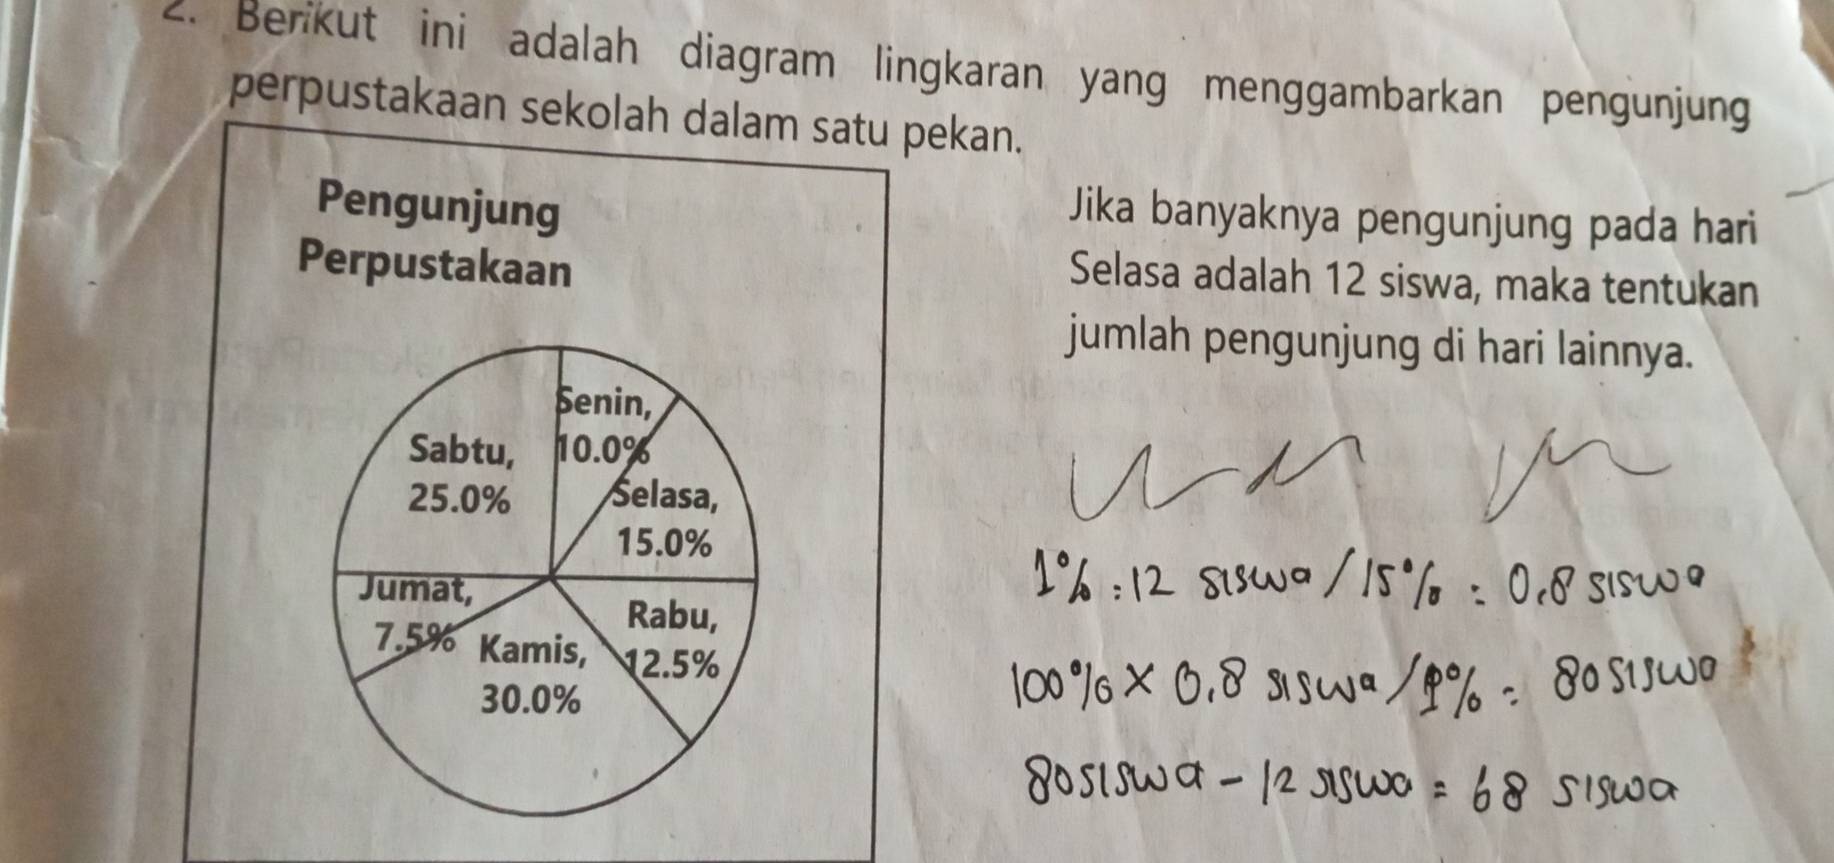 2. Berikut ini adalah diagram lingkaran yang menggambarkan pengunjung
perpustakaan sekolah dalam satu pekan.
Pengunjung
Perpustakaan
Senin,
10.0%
Selasa,
15.0%
Rabu,
12.5%
Kamis,
30.0%
Jumat,
7.5%
Sabtu,
25.0%
Jika banyaknya pengunjung pada hari
Selasa adalah 12 siswa, maka tentukan
jumlah pengunjung di hari lainnya.
1% : 12 siswa / 15% = 0,8 siswa
100% x 0,8 siswa / 1% = 80 siswa
80 siswa - 12 siswa = 68 siswa